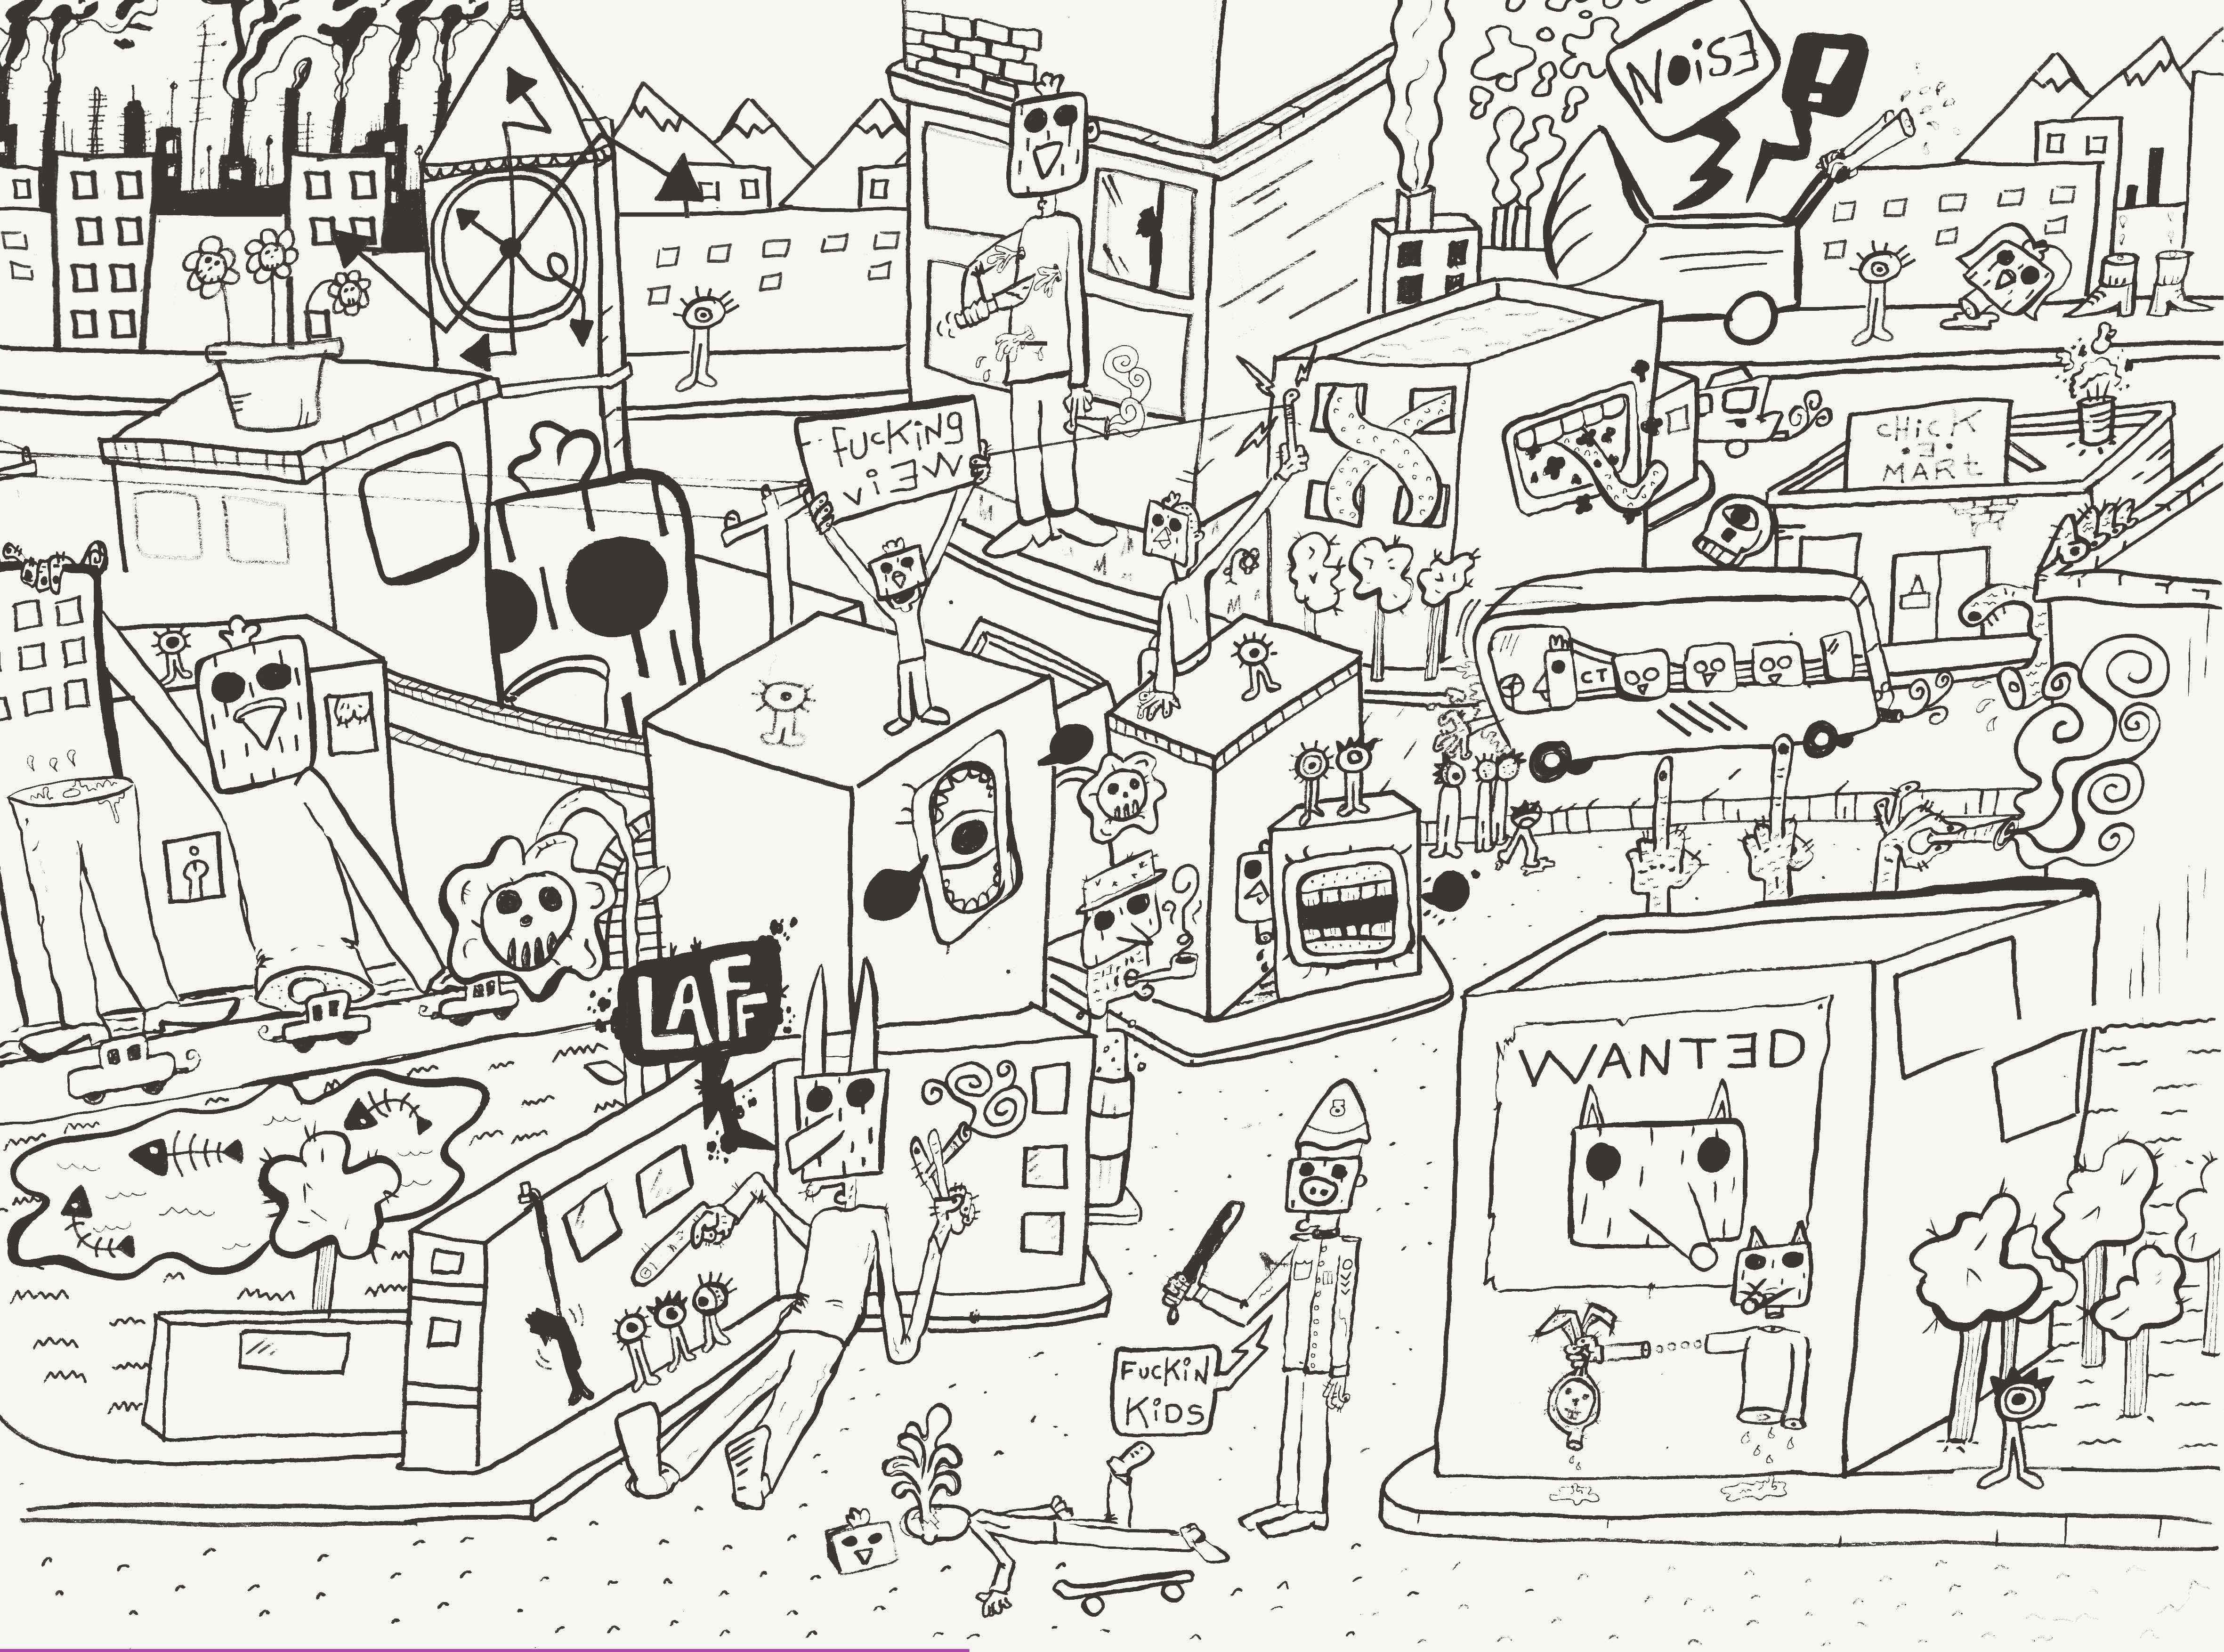 NOiSE
!
FUCKiNG
ViEW
CHiCK
·E·
MARt
CT
LAFF
WANTED
FUCKiN
KiDS